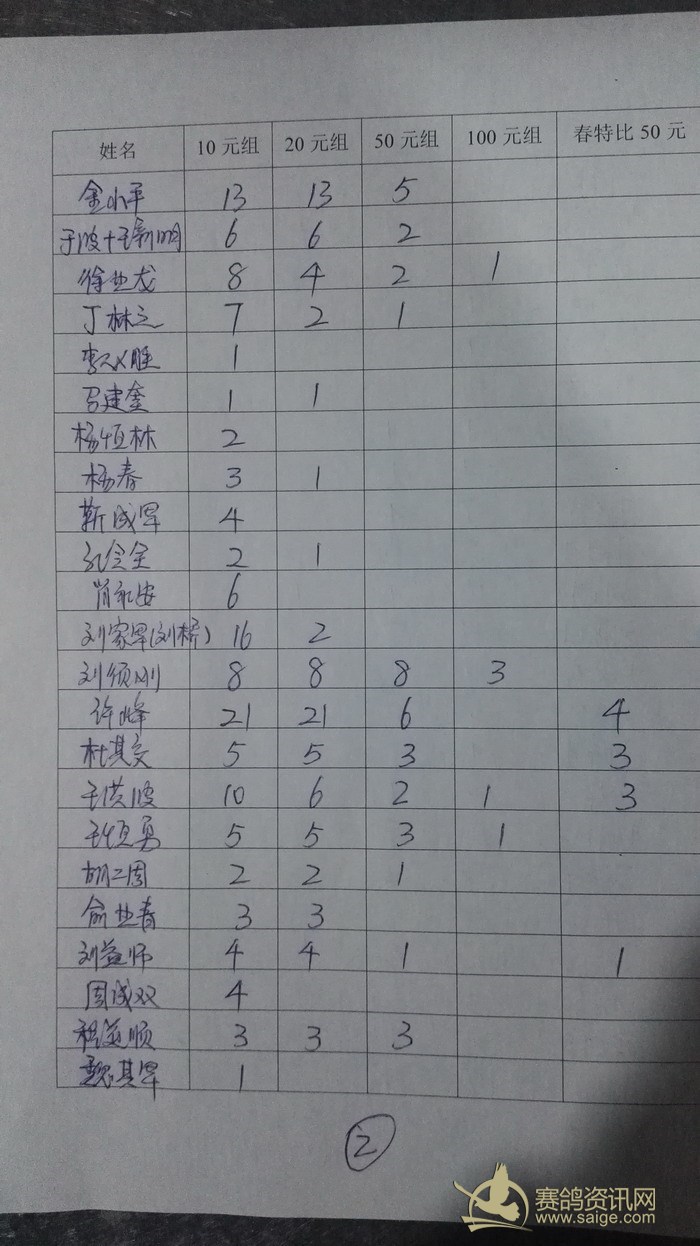 姓名 10元组 20元组 50元组 100元组 春特比50元
金小平 13 13 5
于波+王新明 6 6 2
徐业龙 8 4 2 1
丁林之 7 2 1
李义胜 1
马建奎 1 1
杨恒林 2
杨春 3 1
靳成军 4
孔令全 2 1
肖永安 6
刘家军(刘桥) 16 2
刘须刚 8 8 8 3
许峰 21 21 6 4
杜其交 5 5 3 3
王洪波 10 6 2 1 3
王恒勇 5 5 3 1
胡二周 2 2 1
俞业春 3 3
刘益师 4 4 1 1
周成双 4
程益顺 3 3 3
魏其军 1
2
赛鸽资讯网
www.saige.com